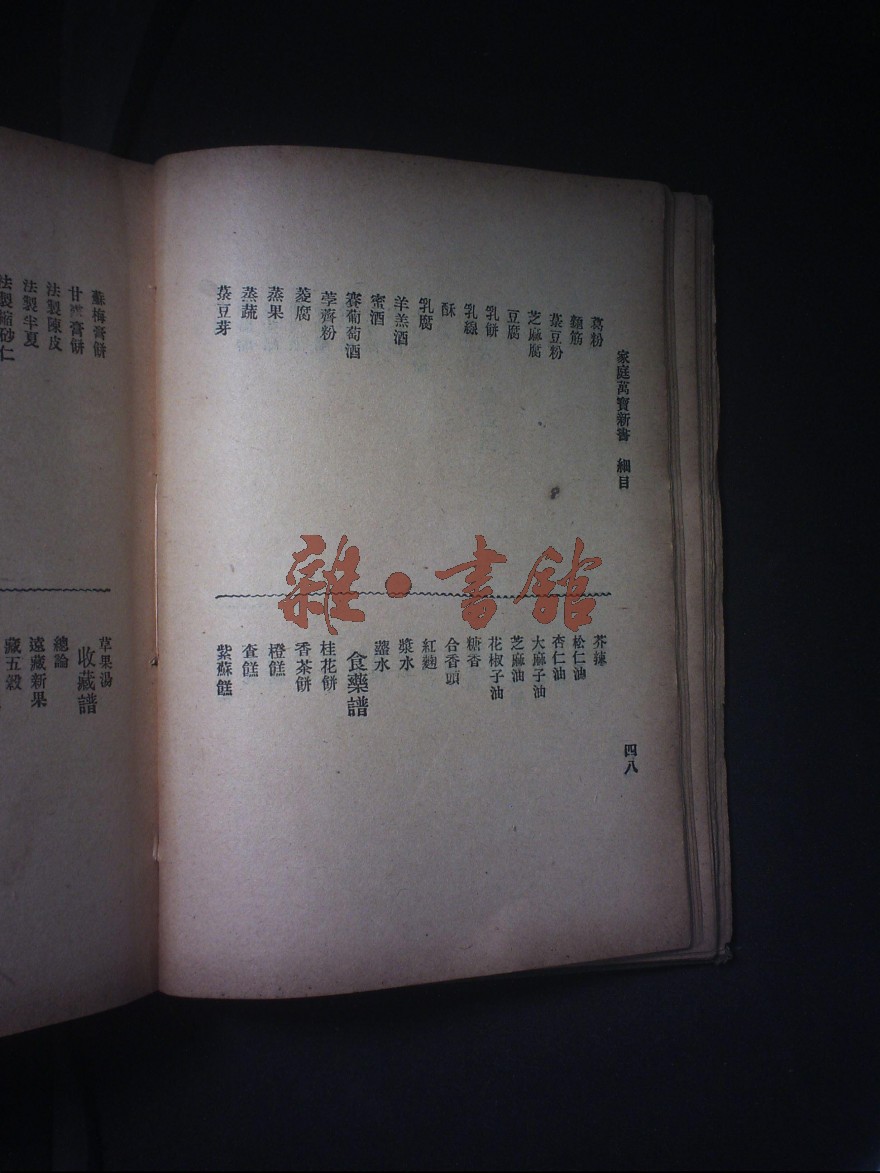 家庭萬寶新書 細目
四八
葛粉
麵筋
菉豆粉
芝麻腐
豆腐
乳餅
乳線
酥
乳腐
羊羔酒
蜜酒
賽葡萄酒
荸薺粉
菱腐
蒸果
蒸蔬
菉豆芽
芥辣
松仁油
杏仁油
大麻子油
芝麻油
花椒子油
糖香
合香頭
紅麴
漿水
虀水
食藥譜
桂花餅
香茶餅
橙糕
查糕
紫蘇糕
蘇梅膏餅
甘 膏餅
法製陳皮
法製半夏
法製縮砂仁
草果湯
收藏譜
總論
遠藏新果
藏五穀
雜·書館